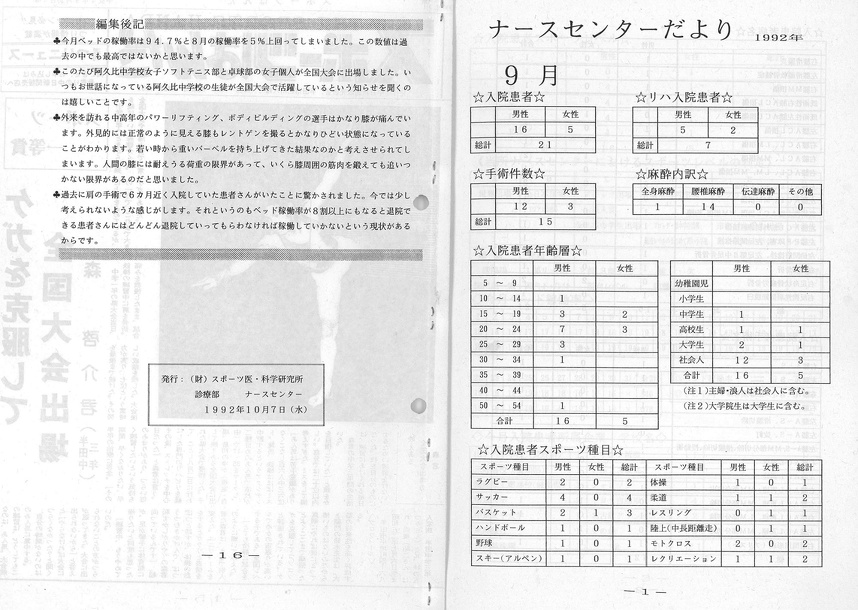 編集後記
♣今月ベッドの稼働率は94.7%と8月の稼働率を5%上回ってしまいました。この数値は過
去の中でも最高ではないかと思います。
♣このたび阿久比中学校女子ソフトテニス部と卓球部の女子個人が全国大会に出場しました。い
つもお世話になっている阿久比中学校の生徒が全国大会で活躍しているという知らせを聞くの
は嬉しいことです。
♣外来を訪れる中高年のパワーリフティング、ボディビルディングの選手はかなり膝が痛んでい
ます。外見的には正常のように見える膝もレントゲンを撮るとかなりひどい状態になっている
ことがわかります。若い時から重いバーベルを持ち上げてきた結果なのかと考えさせられてし
まいます。人間の膝には耐えうる荷重の限界があって、いくら膝周囲の筋肉を鍛えても追いつ
かない限界があるのだと思いました。
♣過去に肩の手術で6カ月近く入院していた患者さんがいたことに驚かされました。今では少し
考えられないような感じがします。それというのもベッド稼働率が8割以上にもなると退院で
きる患者さんにはどんどん退院していってもらわなければ稼働していかないという現状がある
からです。
発行:(財)スポーツ医・科学研究所
診療部 ナースセンター
1992年10月7日(水)
―16―
ナースセンターだより 1992年
9月
☆入院患者☆
男性 女性
16 5
総計 21
☆リハ入院患者☆
男性 女性
5 2
総計 7
☆手術件数☆
男性 女性
12 3
総計 15
☆麻酔内訳☆
全身麻酔 腰椎麻酔 伝達麻酔 その他
1 14 0 0
☆入院患者年齢層☆
男性 女性
5 ~ 9
10 ~ 14 1
15 ~ 19 3 2
20 ~ 24 7 3
25 ~ 29 3
30 ~ 34 1
35 ~ 39
40 ~ 44
50 ~ 54 1
合計 16 5
男性 女性
幼稚園児
小学生
中学生 1
高校生 1 1
大学生 2 1
社会人 12 3
合計 16 5
(注1)主婦・浪人は社会人に含む。
(注2)大学院生は大学生に含む。
☆入院患者スポーツ種目☆
スポーツ種目 男性 女性 総計 スポーツ種目 男性 女性 総計
ラグビー 2 0 2 体操 1 0 1
サッカー 4 0 4 柔道 1 1 2
バスケット 2 1 3 レスリング 0 1 1
ハンドボール 1 0 1 陸上(中長距離走) 0 1 1
野球 1 0 1 モトクロス 2 0 2
スキー(アルペン) 1 0 1 レクリエーション 1 1 2
―1―